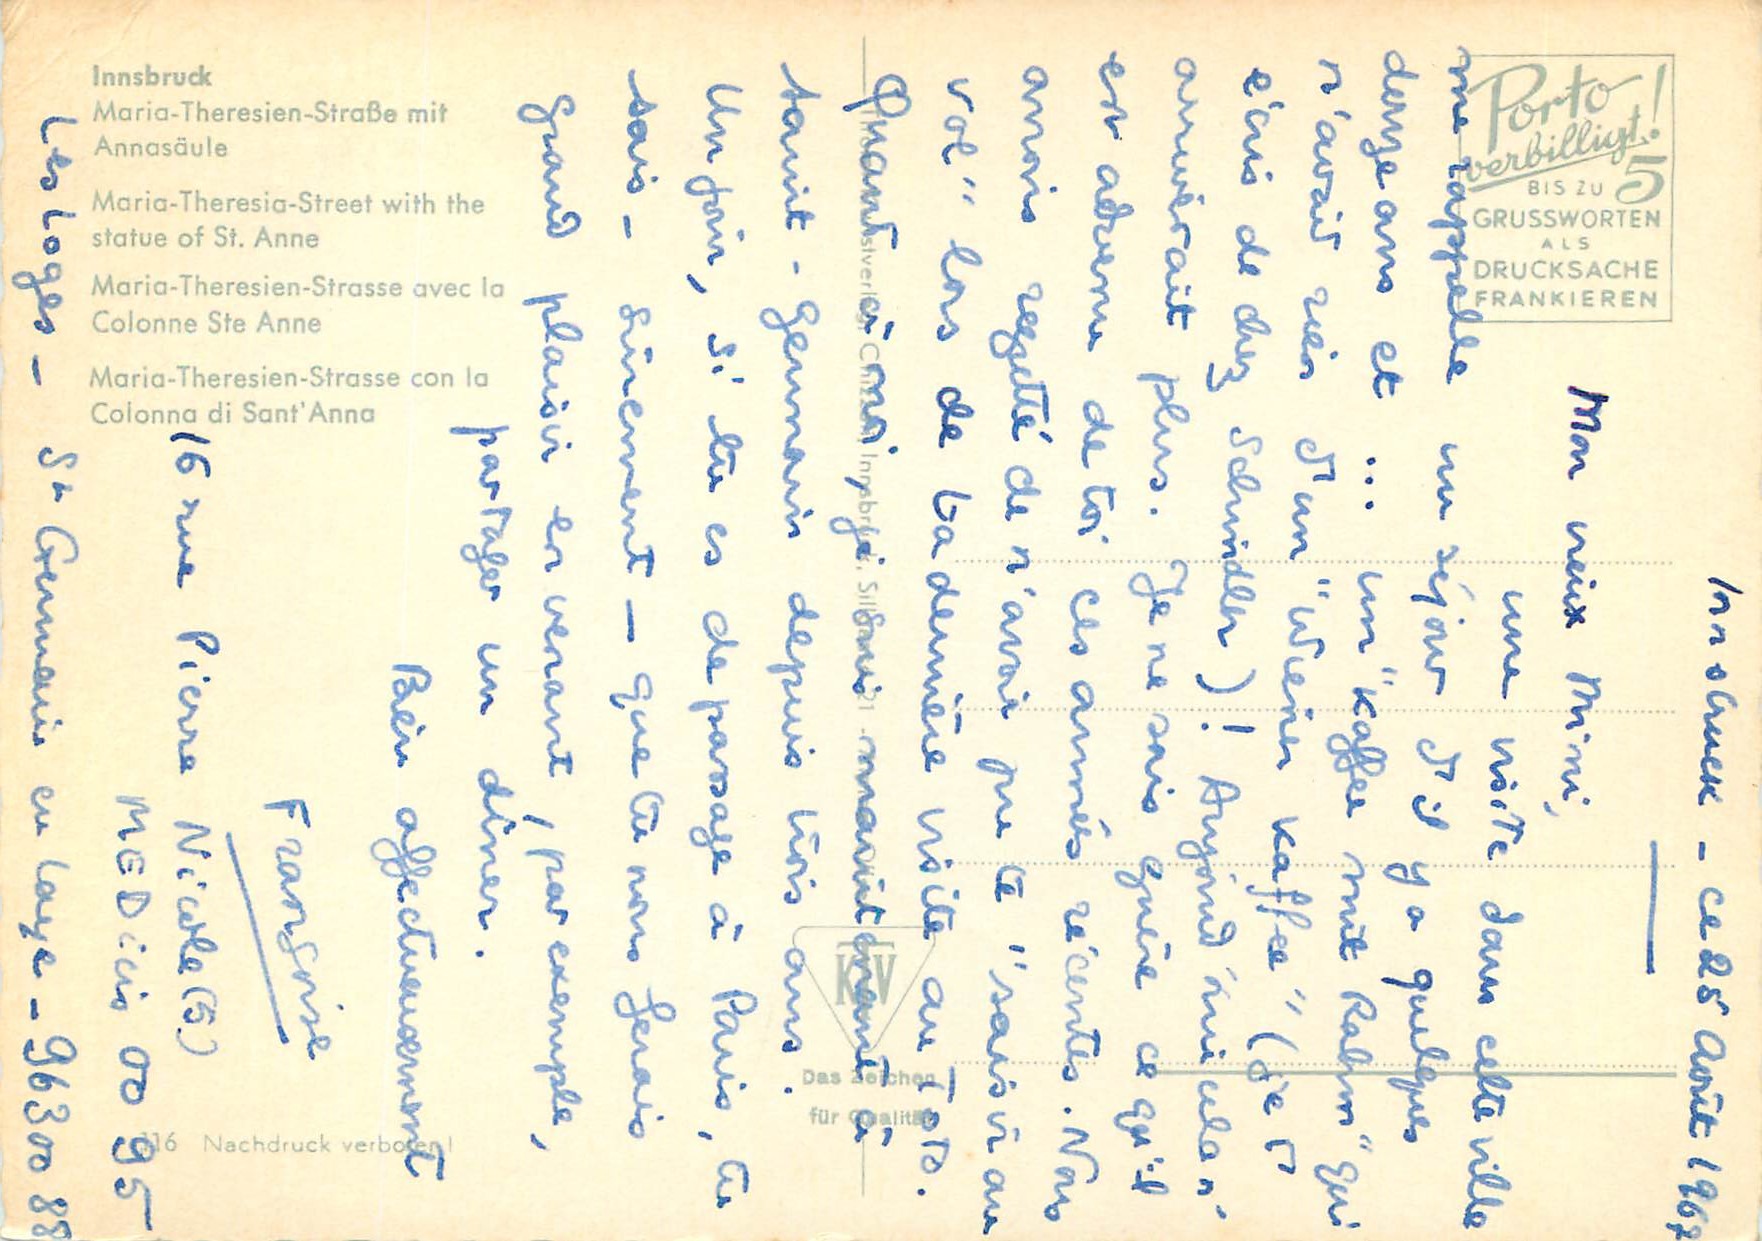 Innsbruck
Maria-Theresien-Straße mit
Annasäule
Maria-Theresia-Street with the
statue of St. Anne
Maria-Theresien-Strasse avec la
Colonne Ste Anne
Maria-Theresien-Strasse con la
Colonna di Sant'Anna
Porto
verbilligt!
BIS ZU 5
GRUSSWORTEN
ALS
DRUCKSACHE
FRANKIEREN
Innsbruck - ce 25 Août 196
Mon vieux Mimi,
une visite dans cette ville
me rappelle un séjour d'il y a quelques
douze ans et ... un "Kaffee mit Rahm" qui
n'avait rien d'un "Wiener Kaffee" (je t'
écris de chez Schindler)! Aujourd'hui cela n'
arriverait plus. Je ne sais guère ce qu'il
est advenu de toi ces années récentes. Nous
avons regretté de n'avoir pu te "saisir au
vol" lors de ta dernière visite au Toto.
Quant à moi je suis maintenant à
Saint-Germain depuis trois ans.
Un jour, si tu es de passage à Paris, tu
sais - sincèrement - que tu nous ferais
grand plaisir en venant, par exemple,
partager un dîner.
Bien affectueusement
Françoise
16 rue Pierre Nicole (5)
MEDicis 00 95
Les Loges - St Germain en Laye - 963 00 88
Das Zeichen
für Qualität
116 Nachdruck verboten!